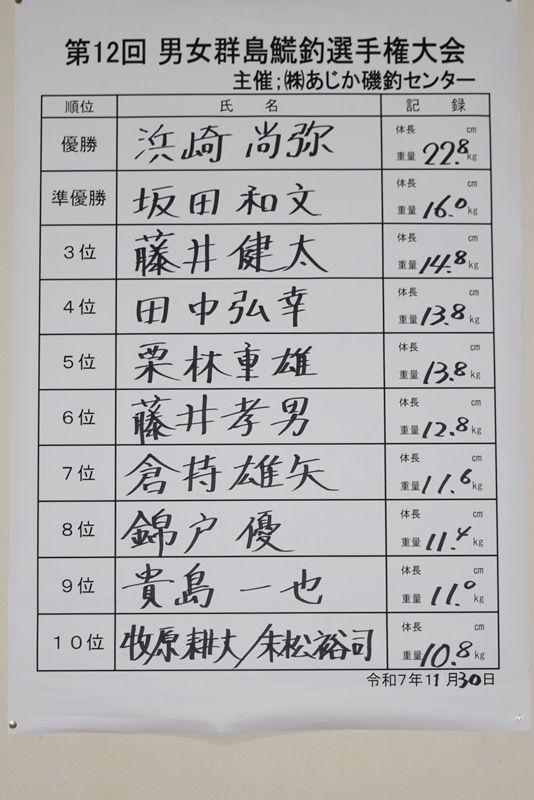 第12回 男女群島鯱釣選手権大会
主催；㈱あじか磯釣センター
順位 氏 名 記 録
優勝 浜崎 尚弥 体長 cm 重量 22.8 kg
準優勝 坂田 和文 体長 cm 重量 16.0 kg
３位 藤井健太 体長 cm 重量 14.8 kg
４位 田中弘幸 体長 cm 重量 13.8 kg
５位 栗林重雄 体長 cm 重量 13.8 kg
６位 藤井孝男 体長 cm 重量 12.8 kg
７位 倉持雄矢 体長 cm 重量 11.6 kg
８位 錦戸 優 体長 cm 重量 11.4 kg
９位 貴島 一也 体長 cm 重量 11.0 kg
１０位 牧原耕丈/末松裕司 体長 cm 重量 10.8 kg
令和7年11月30日